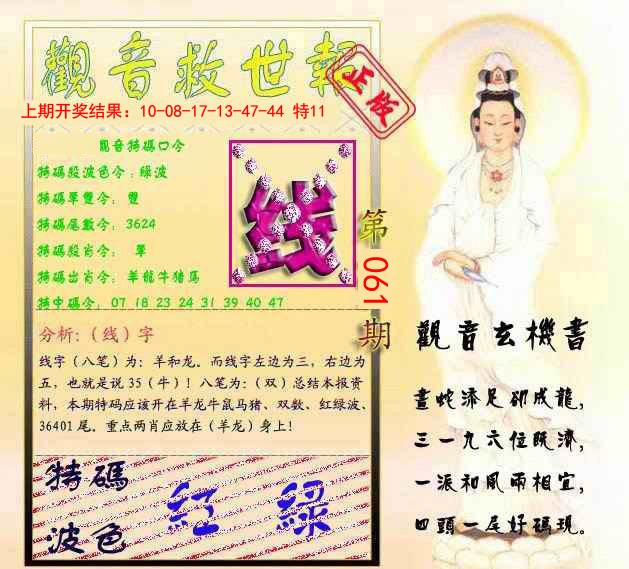 觀音救世報
正版
上期开奖结果：10-08-17-13-47-44 特11
觀音特碼口令
特碼段波色令：綠波
特碼單雙令： 雙
特碼尾數令： 3624
特碼段肖令： 單
特碼出肖令： 羊龍牛猪馬
特中碼令： 07 18 23 24 31 39 40 47
线
第
061
期
分析：（线）字
线字（八笔）为：羊和龙。而线字左边为三，右边为
五，也就是说 35（牛）！八笔为：（双）总结本报资
料，本期特码应该开在羊龙牛鼠马猪、双数、红绿波、
36401 尾。重点两肖应放在（羊龙）身上！
特碼
波色
紅 綠
觀音玄機書
畫蛇添足卻成龍，
三一九六位既濟，
一派和風兩相宜，
四頭一尾好碼現。